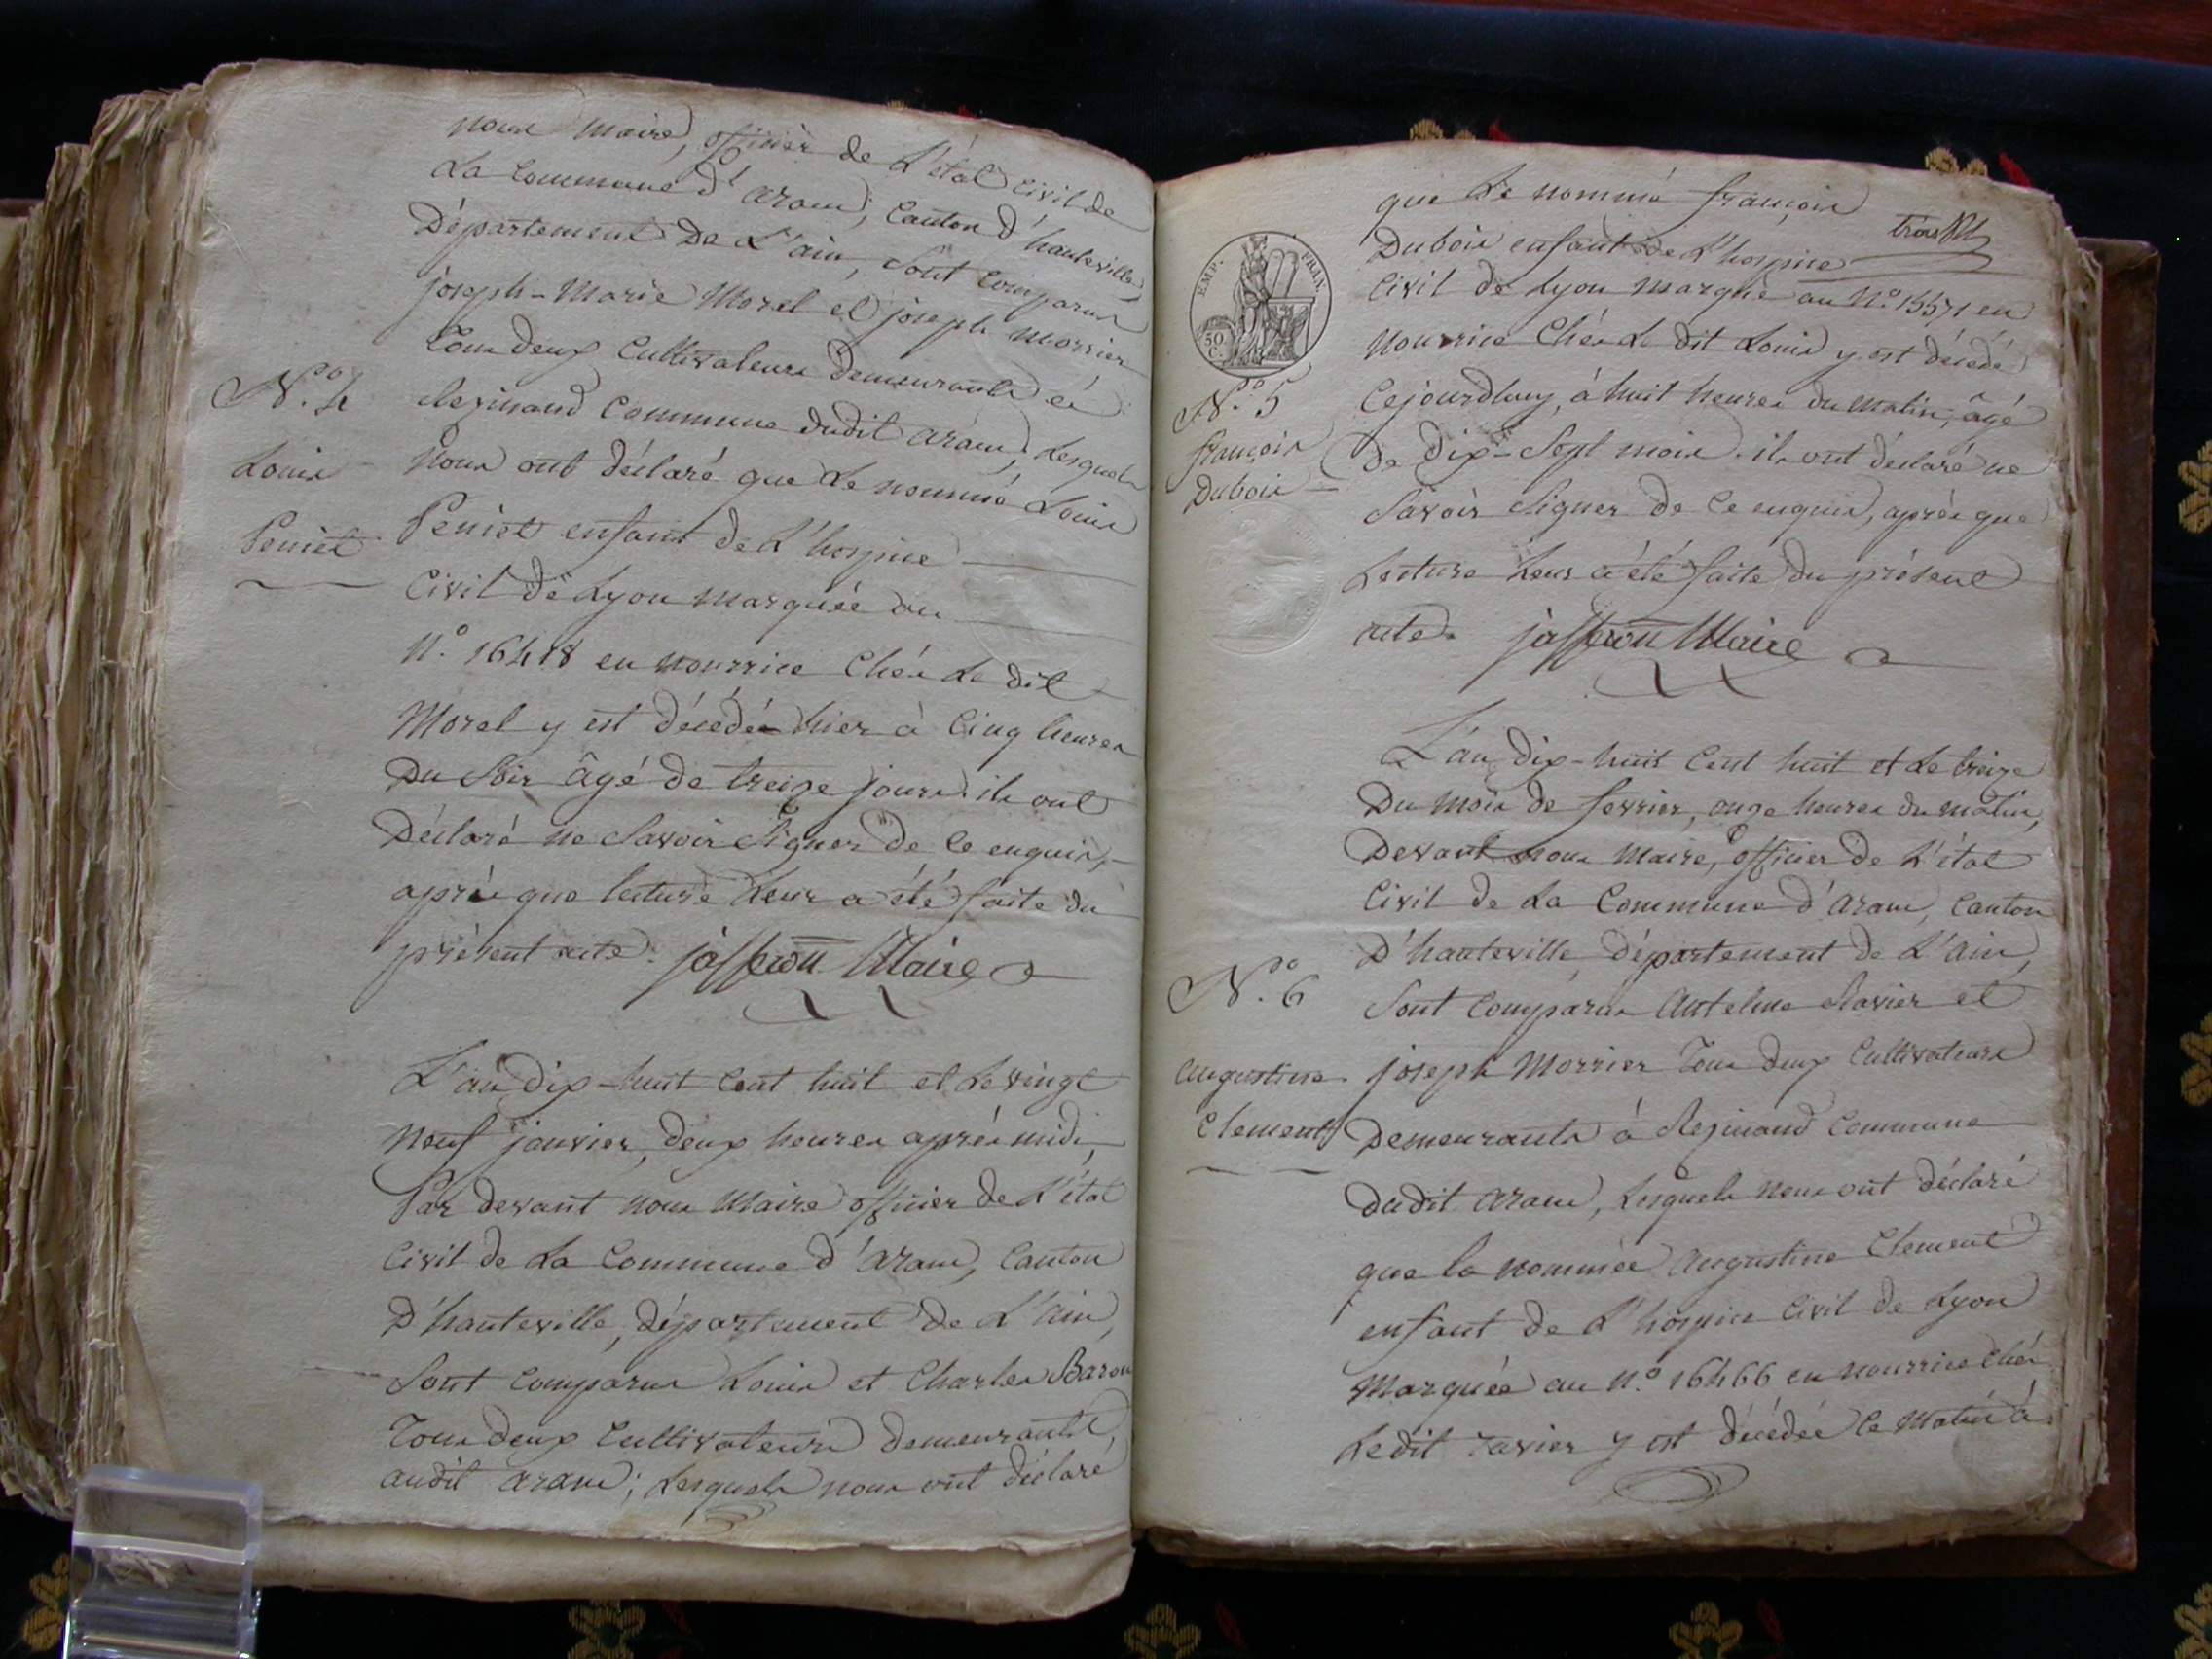 nous maire, officier de L'état civil de
La Commune d'aranc, Canton d'hauteville,
Département De L'ain, sont comparus
joseph-Marie Morel et joseph morrier
tous deux Cultivateurs demeurants à
Resinand Commune dudit aranc, Lesquels
N.° 4
Louis
Peniet
nous ont déclaré que Le nommé Louis
Peniet enfant de L'hospice
Civil de Lyon marquée au
N.° 16418 en nourrice Chés Le dit
Morel y est décédé hier à Cinq heures
Du Soir âgé de treize jours. ils ont
Déclaré ne Savoir Signer de ce enquis,
après que lecture Leur a été faite du
présent acte. jasseron Maire
L'an dix-huit Cent huit et Le vingt
neuf janvier, deux heures après midi,
Par devant nous Maire officier de L'état
Civil de La Commune d'aranc, Canton
D'hauteville, département de L'ain,
Sont comparus Louis et Charles Baron
Tous deux Cultivateurs demeurants
audit aranc; Lesquels nous ont déclaré
que Le nommé françois
trois
EMP. FRAN.
50 C.
Dubois enfant de L'hospice
Civil de Lyon marqué au N.° 15571 en
nourrice Chés Le dit Louis y est décédé
Cejourdhuy, à huit heures du matin, âgé
N.° 5
françois
Dubois
de dix-Sept mois. ils ont déclaré ne
Savoir Signer de ce enquis, après que
Lecture Leur a été faite du présent
acte. jasseron Maire
L'an dix-huit Cent huit et Le treize
Du mois de fevrier, onze heures du matin,
Devant nous maire, officier de L'état
Civil de La Commune d'aranc, Canton
D'hauteville, département de L'ain,
N.° 6
Augustine
Clement
Sont Comparus Antelme Ravier et
joseph Morrier Tous deux Cultivateurs
Demeurants à Resinand Commune
dudit aranc, Lesquels nous ont déclaré
que la nommée Augustine Clement
enfant de L'hospice Civil de Lyon
Marquée au N.° 16466 en nourrice Chés
Ledit ravier y est décédée ce matin à